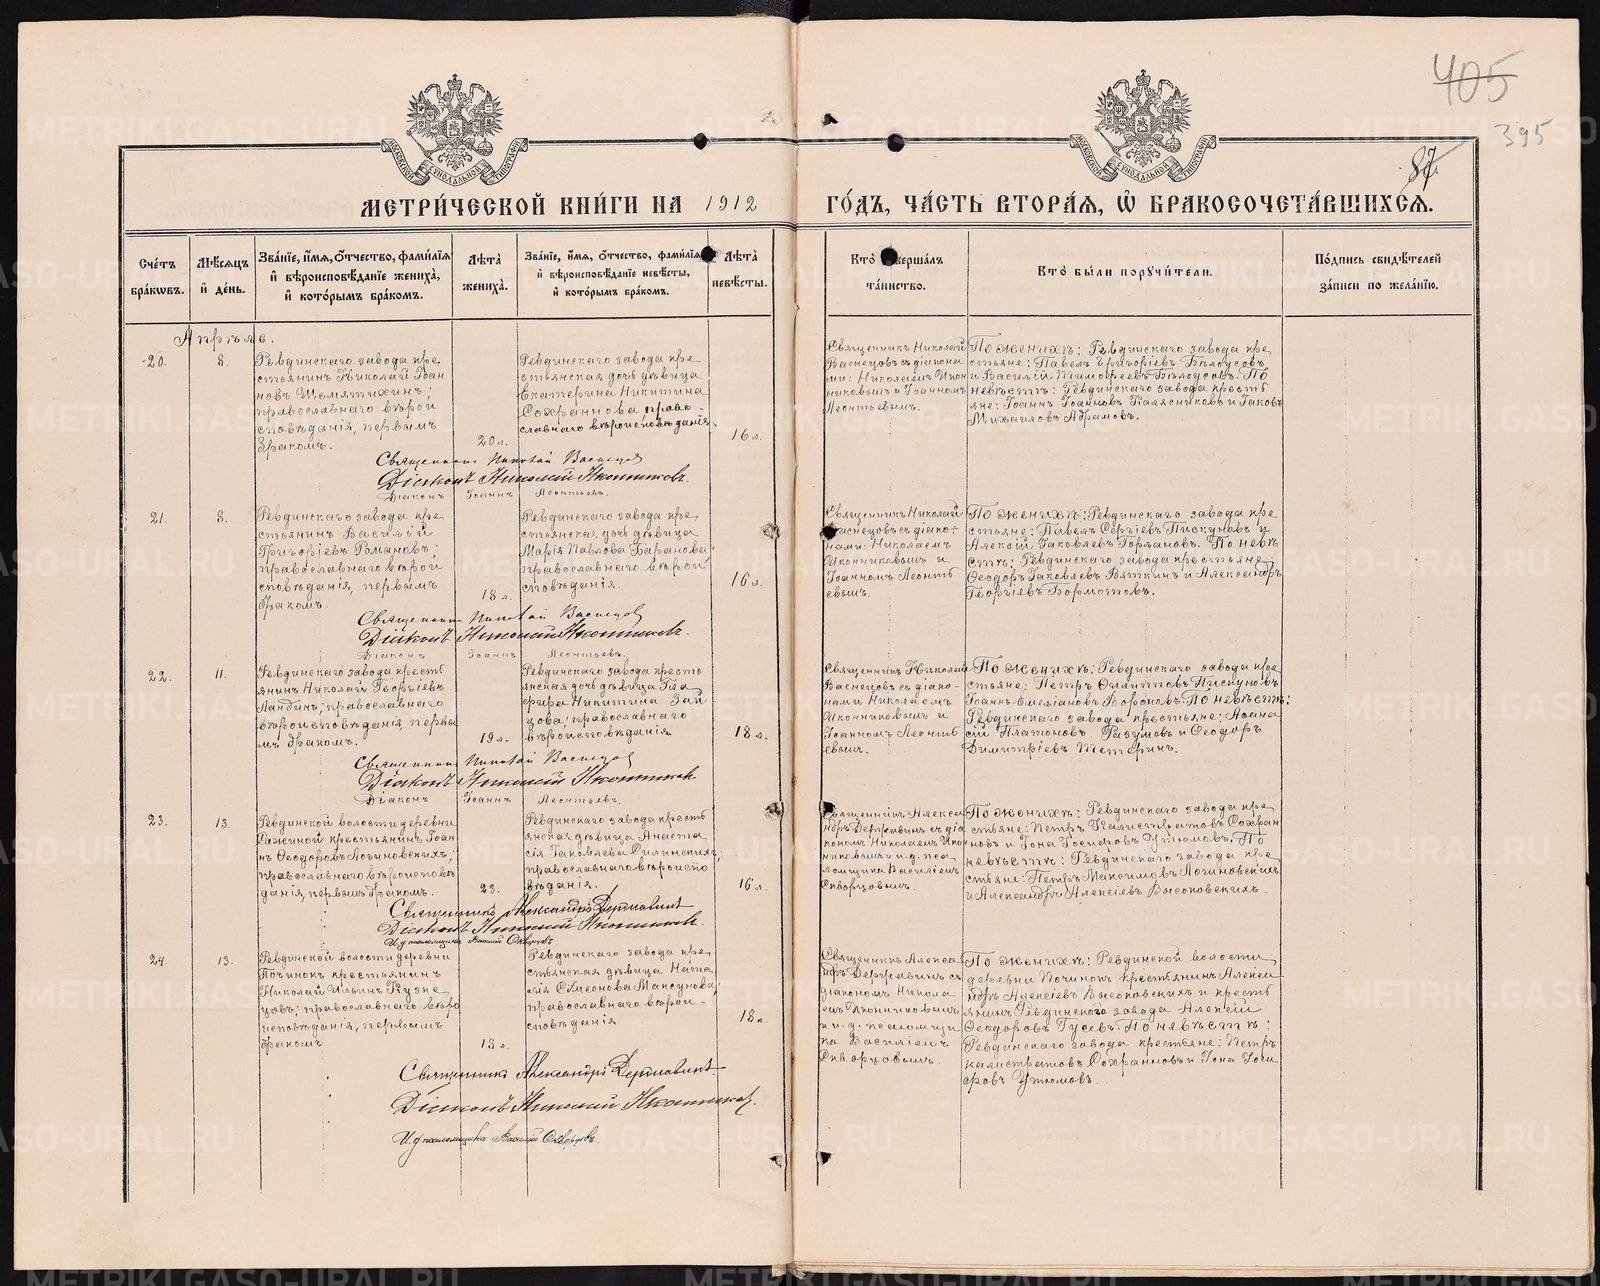 405
395
87
МОСКОВСКОЙ СѴНОДАЛЬНОЙ ТИПОГРАФІИ
МОСКОВСКОЙ СѴНОДАЛЬНОЙ ТИПОГРАФІИ
МЕТРИ́ЧЕСКОЙ КНИ́ГИ НА 1912 ГО́ДЪ, ЧА́СТЬ ВТОРА́Я, Ѡ҆ БРАКОСОЧЕТА́ВШИХСЯ.
Сче́тъ бра́кѡвъ.
Мѣ́сяцъ и҆ де́нь.
Зва́нїе, и҆́мя, ѻ҆́тчество, фами́лїя
и҆ вѣроисповѣ́данїе жениха̀,
и҆ кото́рымъ бра́комъ.
Лѣта̀
жениха̀.
Зва́нїе, и҆́мя, ѻ҆́тчество, фами́лїя
и҆ вѣроисповѣ́данїе невѣ́сты,
и҆ кото́рымъ бра́комъ.
Лѣта̀
невѣ́сты.
Кто̀ соверша́лъ
та́инство.
Кто̀ бы́ли порꙋчи́тели.
По́дпись свидѣ́телей
за́писи по жела́нїю.
Апрѣль.
20.
8.
Ревдинскаго завода кре
стьянинъ Николай Іоан
новъ Шемятихинъ;
православнаго вѣрои
сповѣданія, первымъ
бракомъ.
20 л.
Ревдинскаго завода кре
стьянская дочь дѣвица
Екатерина Никитина
Сохраннова право-
славнаго вѣроисповѣданія.
16 л.
Священникъ Николай
Васнецовъ съ діакона
ми: Николаемъ Икон
никовымъ и Іоанномъ
Леонтьевымъ.
По женихѣ: Ревдинскаго завода кре
стьяне: Павелъ Григоріевъ Бѣлоусовъ
и Василій Тимофеевъ Бѣлоусовъ. По
невѣстѣ: Ревдинскаго завода крестья
яне: Іоаннъ Іоанновъ Калясниковъ и Іаковъ
Михаиловъ Абрамовъ.
Священникъ Николай Васнецов
Діаконъ Николай Иконниковъ.
Діаконъ Іоаннъ Леонтьевъ.
21.
8.
Ревдинскаго завода кре
стьянинъ Василій
Григоріевъ Романовъ;
православнаго вѣрои
сповѣданія, первымъ
бракомъ.
18 л.
Ревдинскаго завода кре
стьянска, дочь дѣвица
Марія Павлова Баранова;
православнаго вѣрои
сповѣданія.
16 л.
Священникъ Николай
Васнецовъ съ діако-
нами: Николаемъ
Иконниковымъ и
Іоанномъ Леонть
евымъ.
По женихѣ: Ревдинскаго завода кре
стьяне: Павелъ Сергіевъ Пискуновъ и
Алексій Іаковлевъ Горлановъ. По невѣ
стѣ: Ревдинскаго завода крестьяне;
Ѳеодоръ Іаковлевъ Вяткинъ и Александръ
Георгіевъ Бормотовъ.
Священникъ Николай Васнецов
Діаконъ Николай Иконниковъ.
Діаконъ Іоаннъ Леонтьевъ.
22.
11.
Ревдинскаго завода кресть
янинъ Николай Георгіевъ
Ландинъ; православнаго
вѣроисповѣданія, первы
мъ бракомъ.
19 л.
Ревдинскаго завода кресть
янская дочь дѣвица Гла
фира Никитина Зай
цова; православнаго
вѣроисповѣданія
18 л.
Священникъ Николай
Васнецовъ съ діако-
нами Николаемъ
Иконниковымъ и
Іоанномъ Леонть
евымъ.
По женихѣ: Ревдинскаго завода кре
стьяне: Петръ Филипповъ Пискуновъ
Іоаннъ Омеліановъ Вороновъ. По невѣстѣ:
Ревдинскаго завода крестьяне: Аѳана
сій Платоновъ Разумовъ и Ѳеодоръ
Димитріевъ Тетеринъ.
Священникъ Николай Васнецов
Діаконъ Николай Иконников
Діаконъ Іоаннъ Леонтьевъ.
23.
13.
Ревдинской волости деревни
крестьянинъ Іоан
нъ Ѳеодоровъ Логиновскихъ;
православнаго вѣроисповѣ
данія, первымъ бракомъ.
23.
Ревдинскаго завода кресть
янская дѣвица Анаста
сія Іаковлева Силинскихъ;
православнаго вѣроиспо
вѣданія.
16 л.
Священникъ Алекса
ндръ Державинъ съ діа
кономъ Николаемъ Ико
нниковымъ и и. д. пса
ломщика Василіемъ
Скворцовымъ.
По женихѣ: Ревдинскаго завода кре
стьяне: Петръ Калистратовъ Сохран
новъ и Іона Іосифовъ Утюмовъ. По
невѣстѣ: Ревдинскаго завода кре
стьяне: Петръ Максимовъ Логиновскихъ
и Александръ Алексіевъ Высоковскихъ.
Священникъ Александръ Державинъ
Діаконъ Николай Иконников.
И. д. псаломщика Василій Скворцовъ
24.
13.
Ревдинской волости деревни
Починокъ крестьянинъ
Николай Ильинъ Кузне
цовъ; православнаго вѣро
исповѣданія, первымъ
бракомъ
18 л.
Ревдинскаго завода кре
стьянская дѣвица Ната
лія Симеонова Максунова;
православнаго вѣрои-
сповѣданія
18 л.
Священникъ Алекса
ндръ Державинъ съ
діакономъ Никола
емъ Иконниковымъ
и и. д. псаломщи
ка Василіемъ
Скворцовымъ.
По женихѣ: Ревдинской волости
деревни Починокъ крестьянинъ Алекса
ндръ Алексіевъ Высоковскихъ и кресть
янинъ Ревдинскаго завода Алексій
Ѳеодоровъ Гусевъ. По невѣстѣ:
Ревдинскаго завода крестьяне: Петръ
Калистратовъ Сохранновъ и Іона Іоси
фовъ Утюмовъ.
Священникъ Александръ Державинъ
Діаконъ Николай Иконников.
И. д. псаломщика Василій Скворцовъ.
METRIKI.GASO-URAL.RU